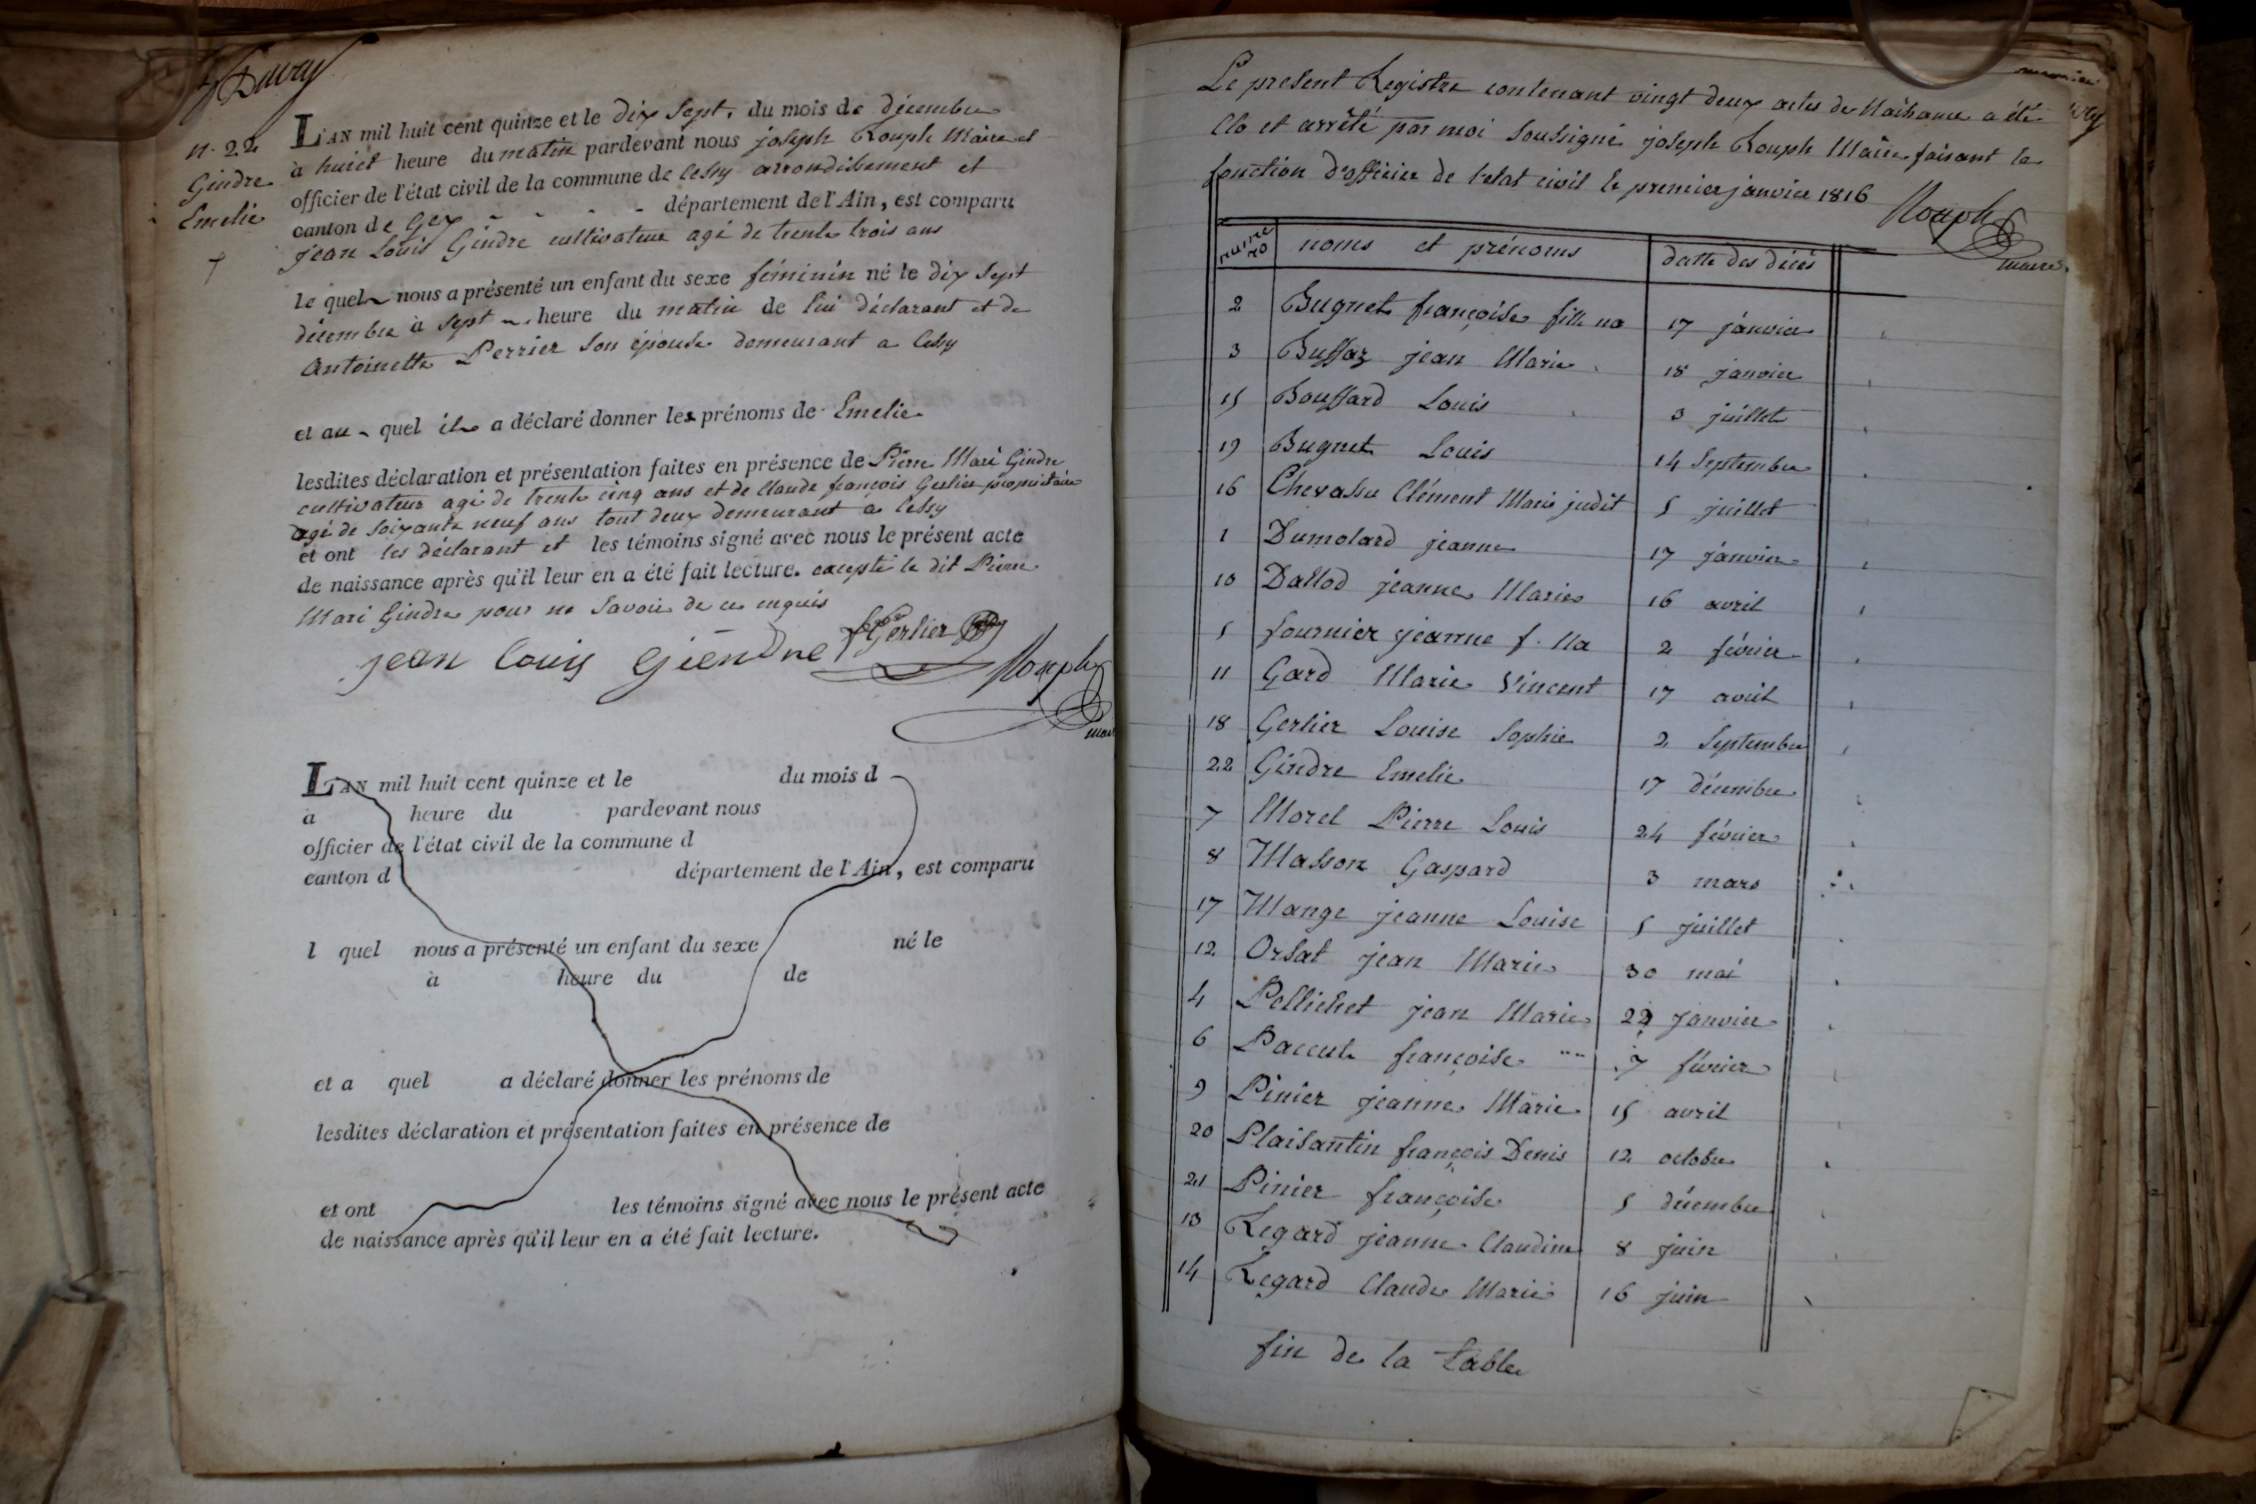 Duvay
n. 22
Gindre
Emelie
L'AN mil huit cent quinze et le dix Sept. du mois de décembre
à huict heure du matin pardevant nous joseph Rouph Maire et
officier de l'état civil de la commune de Cessy arrondissement et
canton de Gex - - - - département de l'Ain, est comparu
jean Louis Gindre cultivateur agé de trente trois ans
le quel nous a présenté un enfant du sexe féminin né le dix Sept
décembre à Sept heure du matin de lui déclarant et de
Antoinette Perrier Son épouse demeurant a Cessy
et au quel il a déclaré donner les prénoms de Emelie
lesdites déclaration et présentation faites en présence de Pierre Mari Gindre
cultivateur agé de trente cinq ans et de Claude françois Gerlier propriétaire
agé de Soixante neuf ans tout deux demeurant a Cessy
et ont les déclarant et les témoins signé avec nous le présent acte
de naissance après qu'il leur en a été fait lecture. excepté le dit Pierre
Mari Gindre pour ne Savoir de ce enquis
jean Louis Giendre Gerlier Rouph
L'AN mil huit cent quinze et le du mois d
a heure du pardevant nous
officier de l'état civil de la commune d
canton d département de l'Ain, est comparu
l quel nous a présenté un enfant du sexe né le
à heure du de
et a quel a déclaré donner les prénoms de
lesdites déclaration et présentation faites en présence de
et ont les témoins signé avec nous le présent acte
de naissance après qu'il leur en a été fait lecture.
Le present Registre contenant vingt deux actes de Naissance a été
Clo et arrêté par moi Soussigné joseph Rouph Maire faisant la
fonction d'officier de l'etat civil le premier janvier 1816
Rouph
maire
numero noms et prénoms datte des décès
2 Bugnet françoise fille na 17 janvier
3 Buffaz jean Marie 18 janvier
15 Bouffard Louis 3 juillet
19 Bugnet Louis 14 Septembre
16 Chevassu Clément Marie judit 5 juillet
1 Dumolard jeanne 17 janvier
10 Dallod jeanne Marie 16 avril
5 fournier jeanne f. Na 2 février
11 Gard Marie Vincent 17 avril
18 Gerlier Louise Sophie 2 Septembre
22 Gindre Emelie 17 décembre
7 Morel Pierre Louis 24 février
8 Masson Gaspard 3 mars
17 Mange jeanne Louise 5 juillet
12 Orsat jean Marie 30 mai
4 Pellichet jean Marie 22 janvier
6 Paccut françoise 7 février
9 Pinier jeanne Marie 15 avril
20 Plaisantin françois Denis 12 octobre
21 Pinier françoise 5 décembre
13 Regard jeanne Claudine 8 juin
14 Regard Claude Marie 16 juin
fin de la table